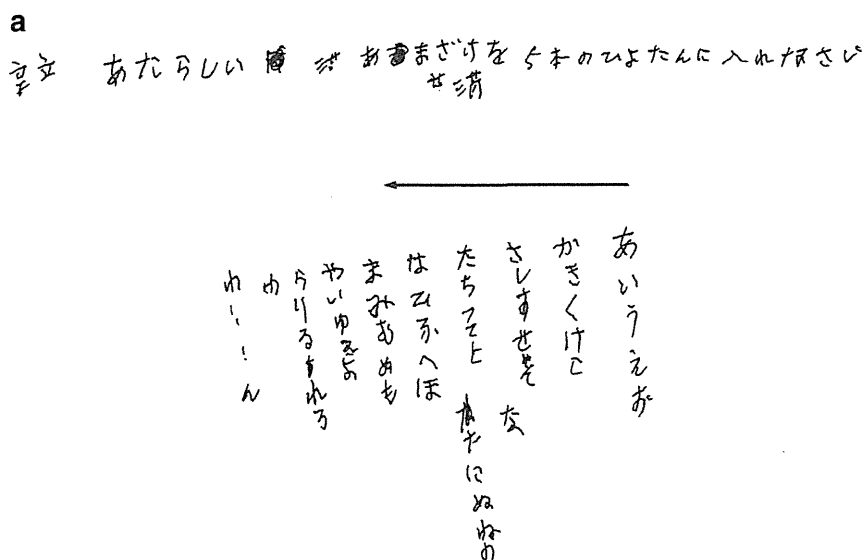 a
あたらしい あまざけを 5本のひょたんに入れなさい
あいうえお
かきくけこ
さしすせそ な
たちつてと なにぬねの
はひふへほ
まみむめも
やいゆえよ
らりるれろ
わ
ん